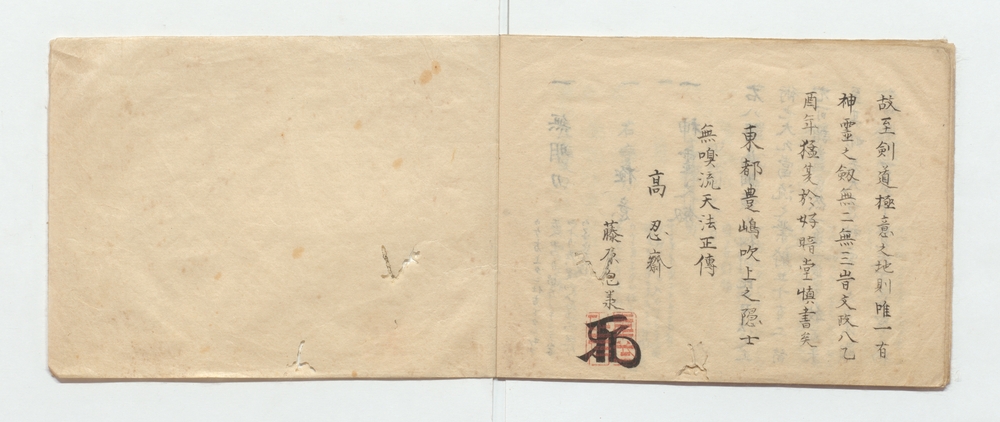 故至剣道極意之地則唯一有
神霊之劔無二無三旹文政八乙
酉年猛夏於好暗堂慎書矣
東都豊嶋吹上之隠士
無嗅流天法正傳
高忍齋
藤原